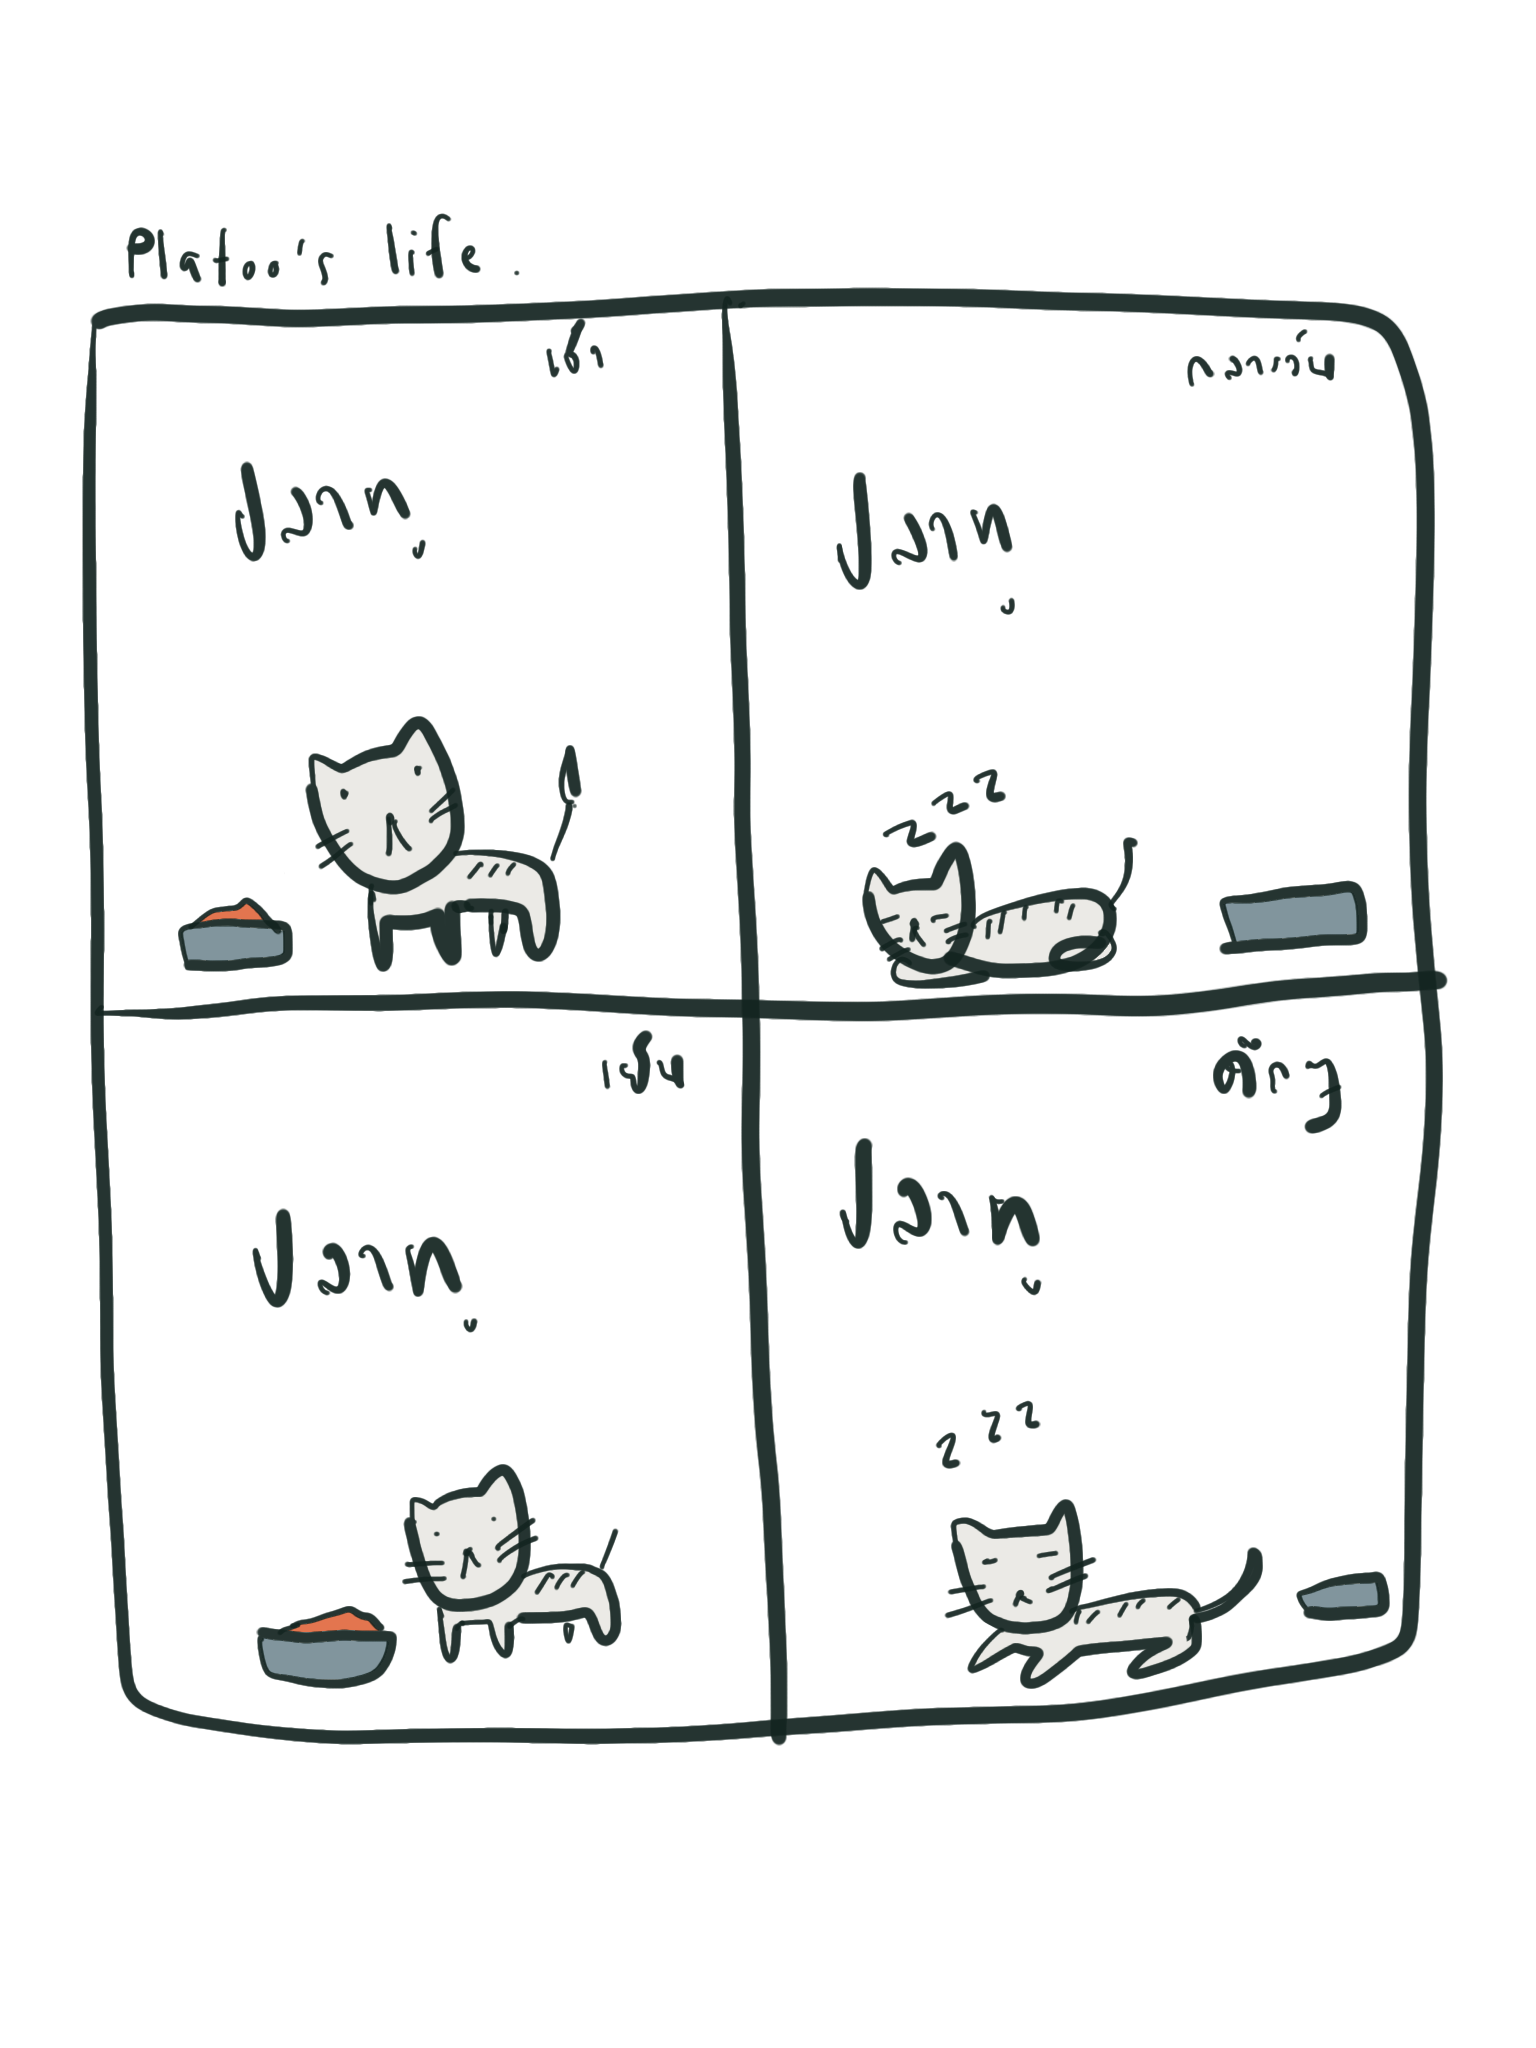 Platoo's life.
เช้า
ปลาทู
กลางวัน
ปลาทู
z z z
เย็น
ปลาทู
ดึกๆ
ปลาทู
z z z